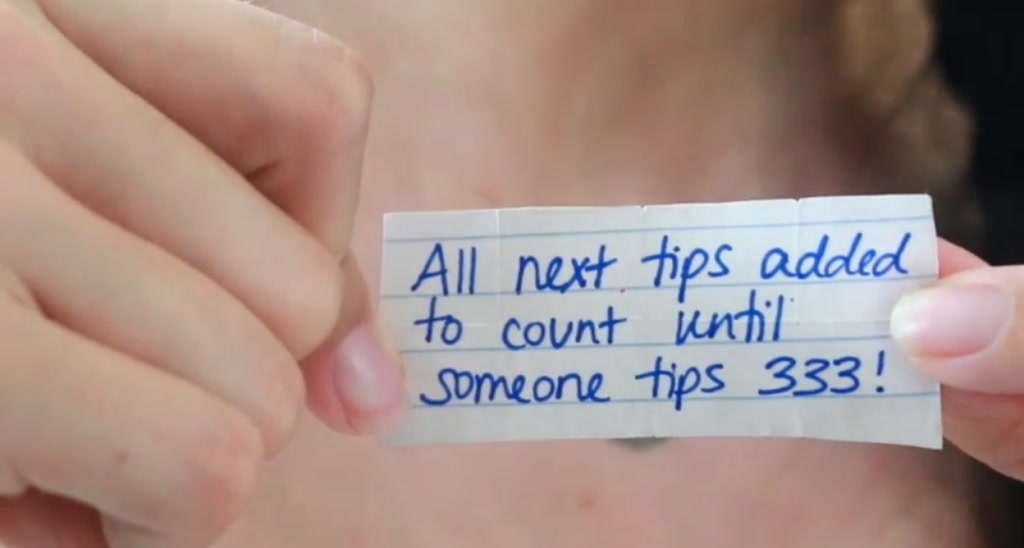 All next tips added
to count until
someone tips 333!